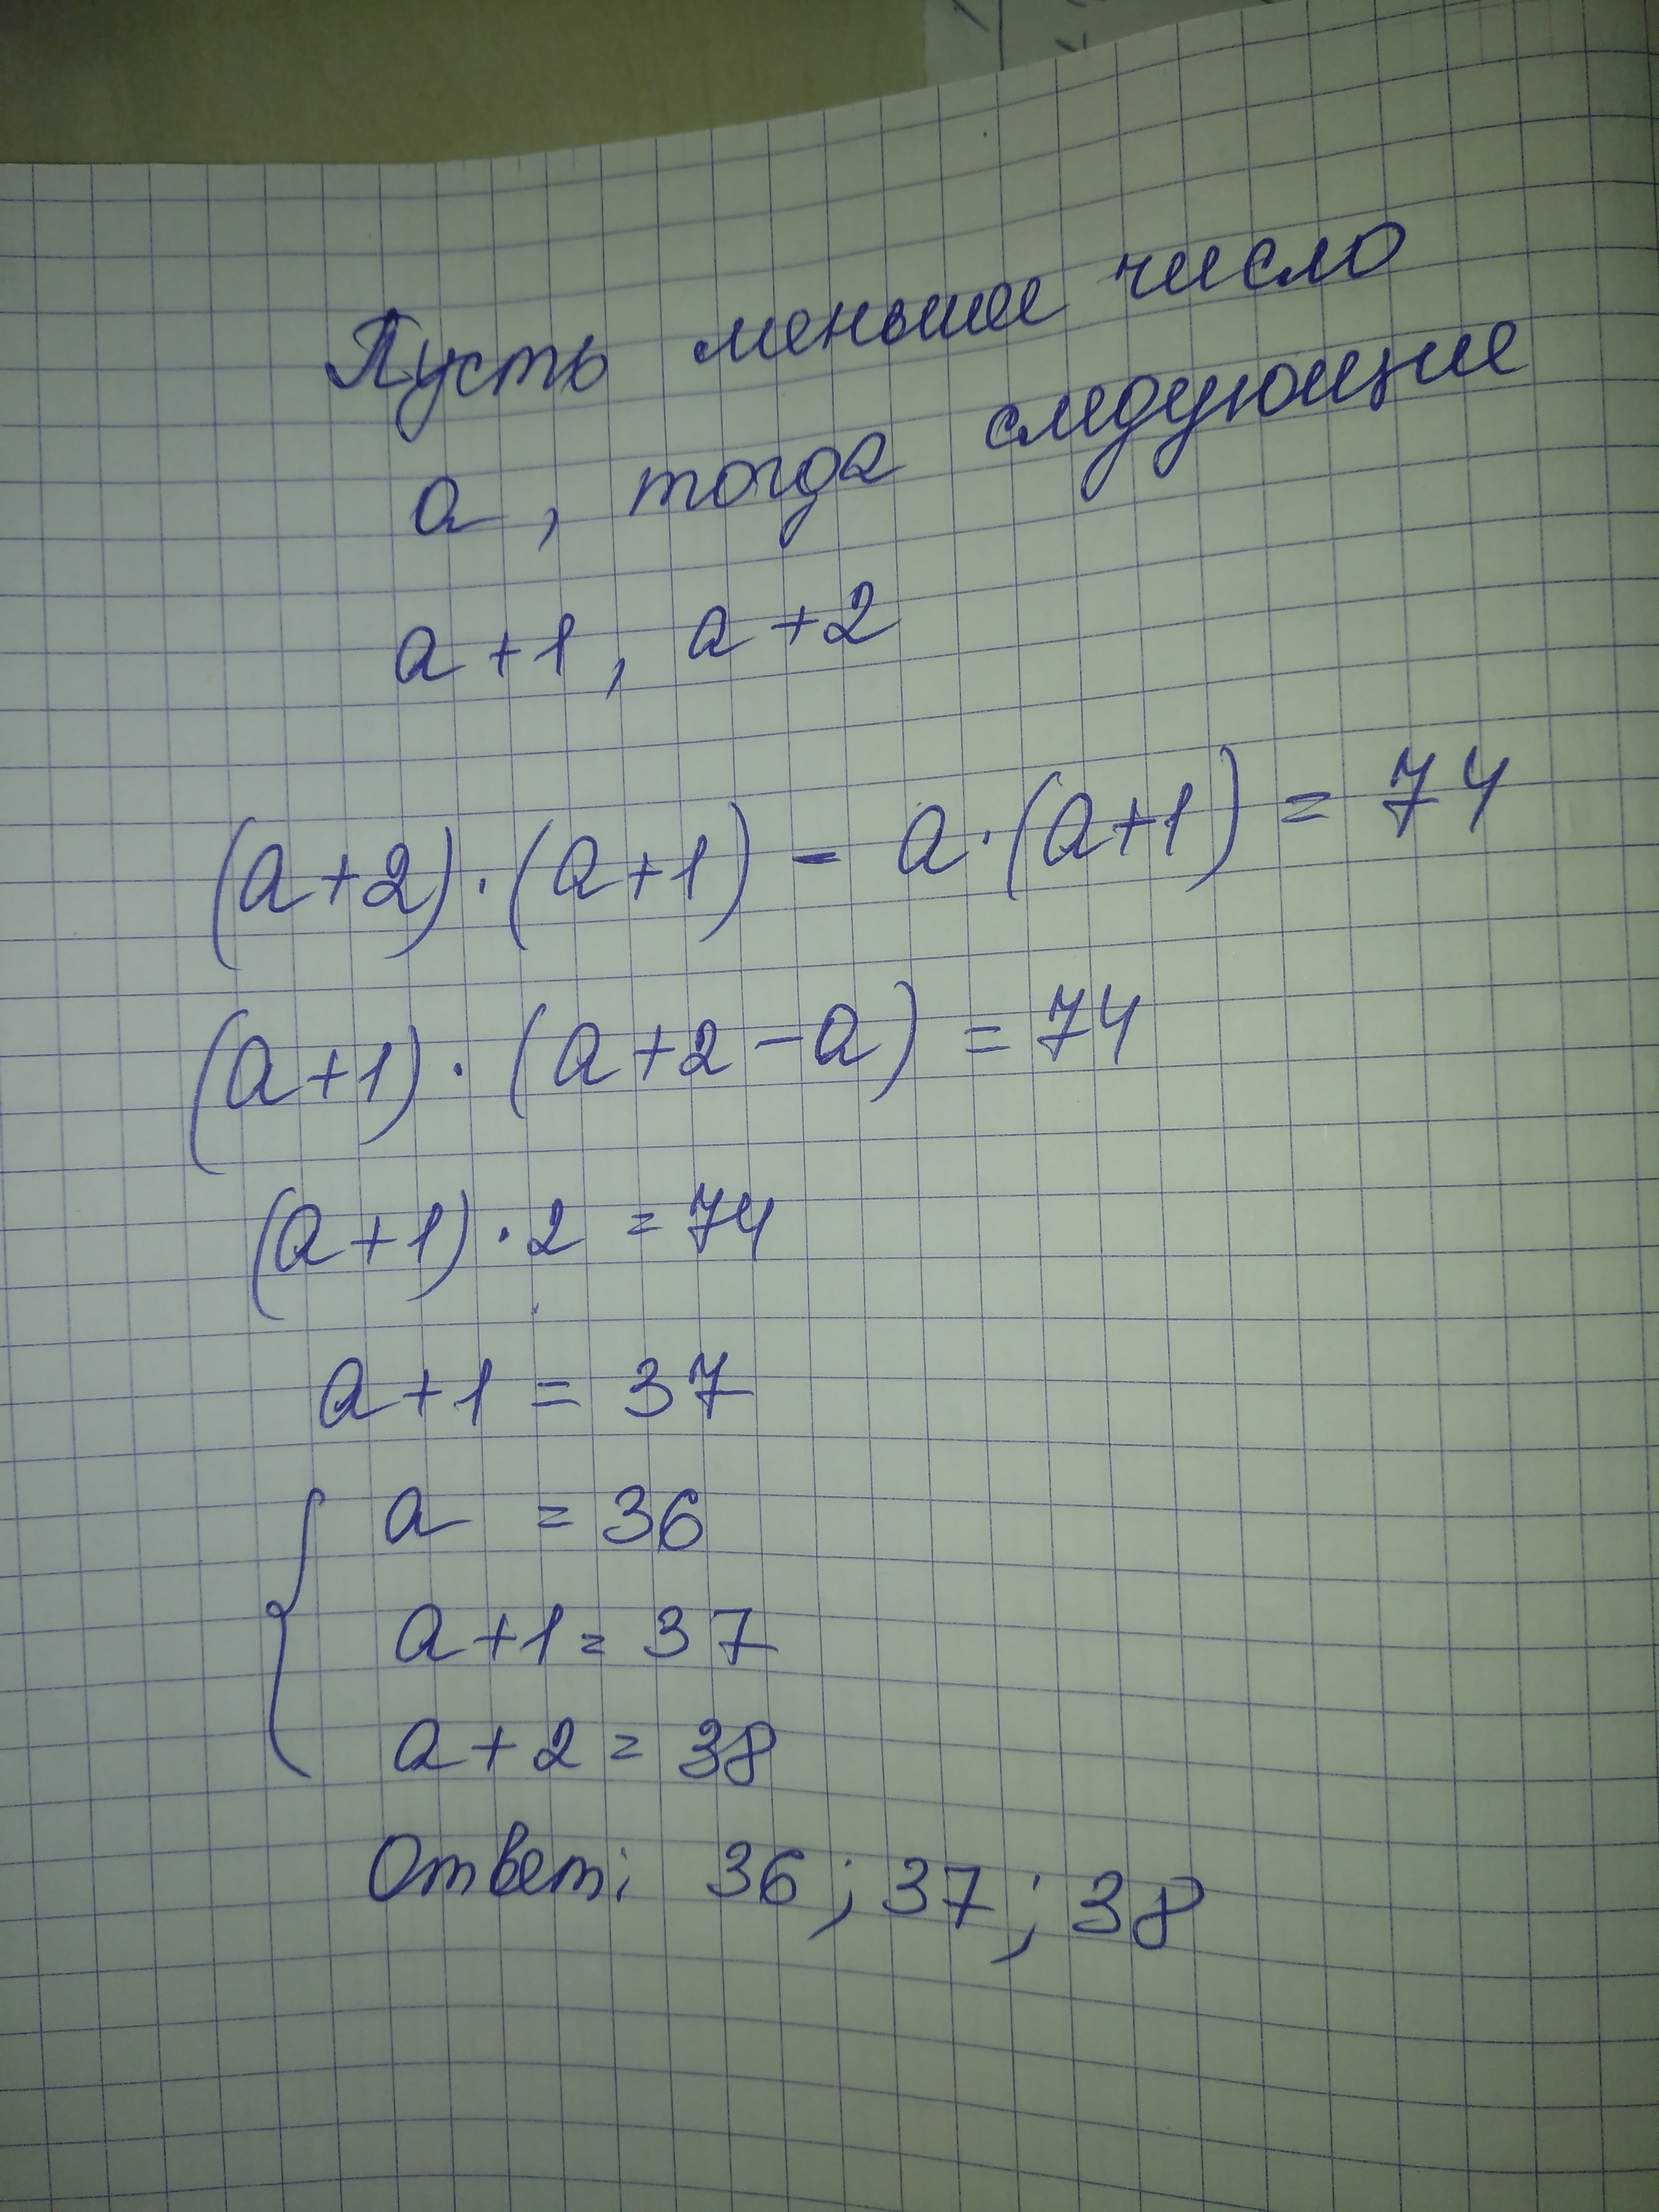 Пусть меньшее число
a, тогда следующие
a+1, a+2
(a+2)·(a+1) - a·(a+1) = 74
(a+1)·(a+2-a) = 74
(a+1)·2 = 74
a+1 = 37
a = 36
a+1 = 37
a+2 = 38
Ответ: 36; 37; 38